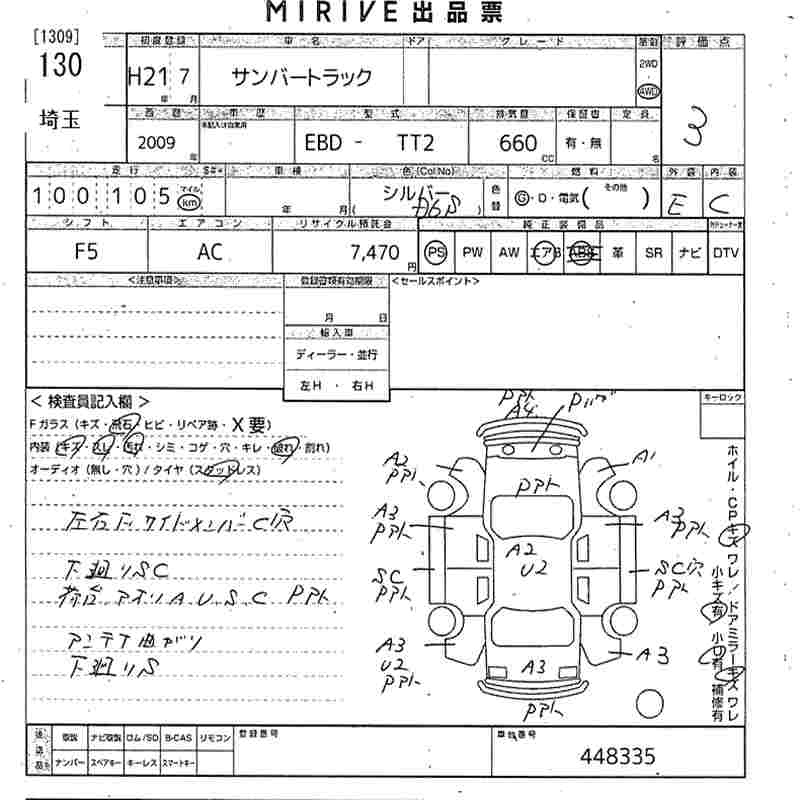 MIRIVE 出品票
[1309]
130
埼玉
初度登録 車名 ドア グレード 駆動 評価点
H21 7 サンバートラック 2WD AWD
年 月
3
車歴 型式 排気量 保証書 定員
2009 EBD - TT2 660 有・無
年 CC 名
走行 車検 色(ColNo) 燃料 外装 内装
100,105 マイル km 年 月 シルバー D6S 色替 G・D・電気 ( その他 ) E C
シフト エアコン リサイクル預託金 純正装備品
F5 AC 7,470 円 PS PW AW エアB ABS 革 SR ナビ DTV
<注意事項> 登録書類有効期限 <セールスポイント>
月 日
輸入車
ディーラー・並行
左H ・ 右H
< 検査員記入欄 > キーロック
Fガラス (キズ・飛石・ヒビ・リペア跡・X要)
内装 (キズ・スレ・汚れ・シミ・コゲ・穴・キレ・破れ・割れ)
オーディオ (無し・穴) / タイヤ (スタッドレス)
左右下サイドメンバーC穴
下廻りSC
荷台アオリAUSC PPト
アンテナ曲がり
下廻りS
PPト
A4
PPト
A2
PPト
A1
A3
PPト
A3
PPト
A2
U2
SC
PPト
SC穴
PPト
A3
U2
PPト
A3
A3
PPト
ホイル・CPキズ ワレ / ドアミラーキズ ワレ
小キズ有 小凹有 補修有
後送品 取説 ナビ取説 ロム/SD B-CAS リモコン 登録番号 車台番号
ナンバー スペアキー キーレス スマートキー 448335